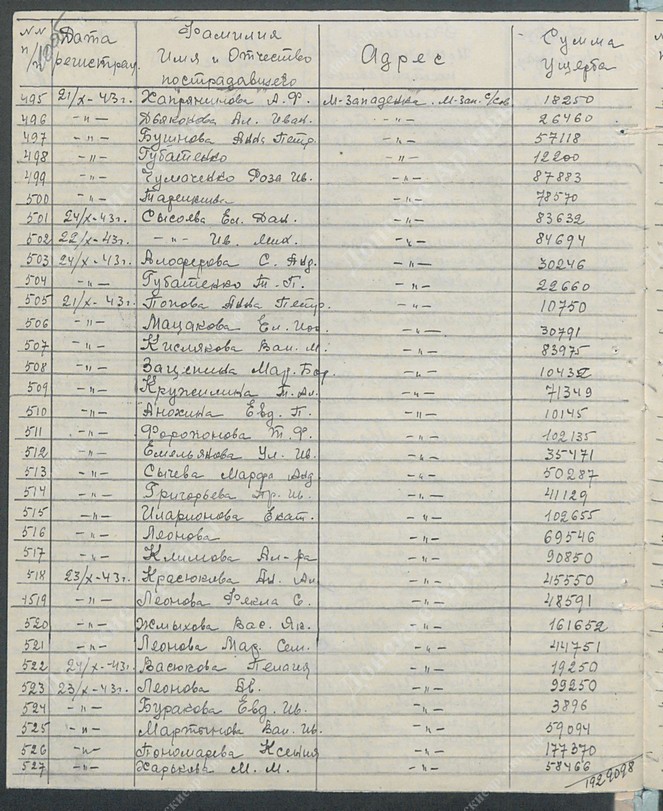 №№ п/п Дата регистрац. Фамилия Имя и Отчество пострадавшего Адрес Сумма ущерба
495 21/X-43г. Хапрянинова А. Ф. М-Западенка. М-Зап. с/сов 18250
496 -"- Дьяконова Ал. Иван. -"- 26460
497 -"- Бушнова Анна Петр. -"- 57118
498 -"- Губатенко -"- 12200
499 -"- Чумаченко Роза Ив. -"- 87883
500 -"- -"- 78570
501 24/X-43г. Сысоева Ел. Дан. -"- 83632
502 22/X-43г. -"- Ив. Мих. -"- 84694
503 24/X-43г. Алоферова С. Анд. -"- 30246
504 -"- Губатенко Т. П. -"- 22660
505 21/X-43г. Попова Анна Петр. -"- 10750
506 -"- Мацакова Ел. -"- 30791
507 -"- Кислякова Вал. М. -"- 83975
508 -"- Зацепина Мар. Бор. -"- 10432
509 -"- Кружилина Т. Ал. -"- 71349
510 -"- Анохина Евд. П. -"- 10145
511 -"- Форопонова Т. Ф. -"- 102135
512 -"- Емельянова Ул. Ив. -"- 35471
513 -"- Сычева Марфа Анд -"- 50287
514 -"- Григорьева Пр. Ив. -"- 41129
515 -"- Иларионова Екат. -"- 102655
516 -"- Леонова -"- 69546
517 -"- Климова Ал-ра -"- 90850
518 23/X-43г. Красюкова Ан. Ал -"- 45550
519 -"- Леонова Фекла С. -"- 48591
520 -"- Жмыхова Вас. Як. -"- 161652
521 -"- Леонова Мар. Сем. -"- 44751
522 24/X-43г. Васюкова Пелагия -"- 19250
523 23/X-43г. Леонова Ев. -"- 99250
524 -"- Буракова Евд. Ив. -"- 3896
525 -"- Мартынова Вал. Ив. -"- 59094
526 -"- Пономарева Ксения -"- 177370
527 -"- Харькова М. М. -"- 58466
1929098